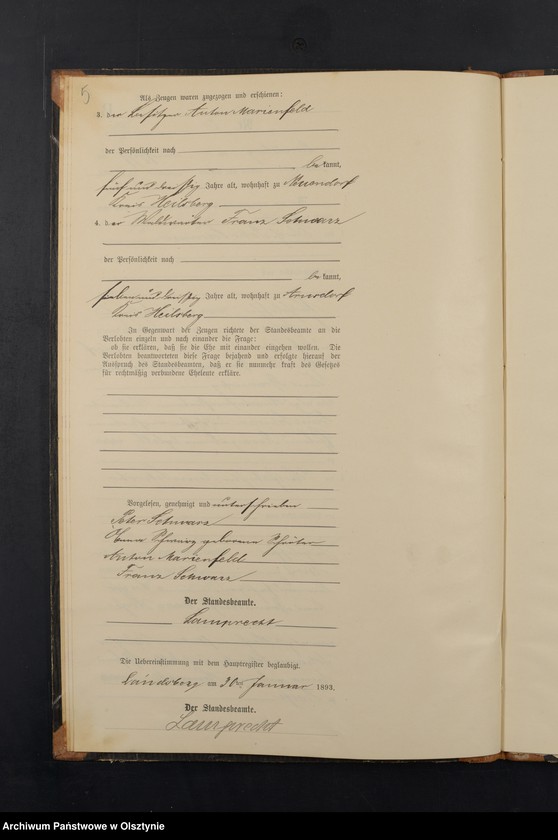 5
Als Zeugen waren zugezogen und erschienen:
3. der Anton Marienfeld
der Persönlichkeit nach
be kannt,
fünf und dreißig Jahre alt, wohnhaft zu
Kreis Heilsberg
4. der Franz Schwarz
der Persönlichkeit nach
be kannt,
Jahre alt, wohnhaft zu Arnsdorf
Kreis Heilsberg
In Gegenwart der Zeugen richtete der Standesbeamte an die
Verlobten einzeln und nach einander die Frage:
ob sie erklären, daß sie die Ehe mit einander eingehen wollen. Die
Verlobten beantworteten diese Frage bejahend und erfolgte hierauf der
Ausspruch des Standesbeamten, daß er sie nunmehr kraft des Gesetzes
für rechtmäßig verbundene Eheleute erkläre.
Vorgelesen, genehmigt und unterschrieben
Peter Schwarz
Schwarz geborene
Anton Marienfeld
Franz Schwarz
Der Standesbeamte.
Lamprecht
Die Uebereinstimmung mit dem Hauptregister beglaubigt.
Landsberg am Januar 1893.
Der Standesbeamte.
Lamprecht
Archiwum Państwowe w Olsztynie